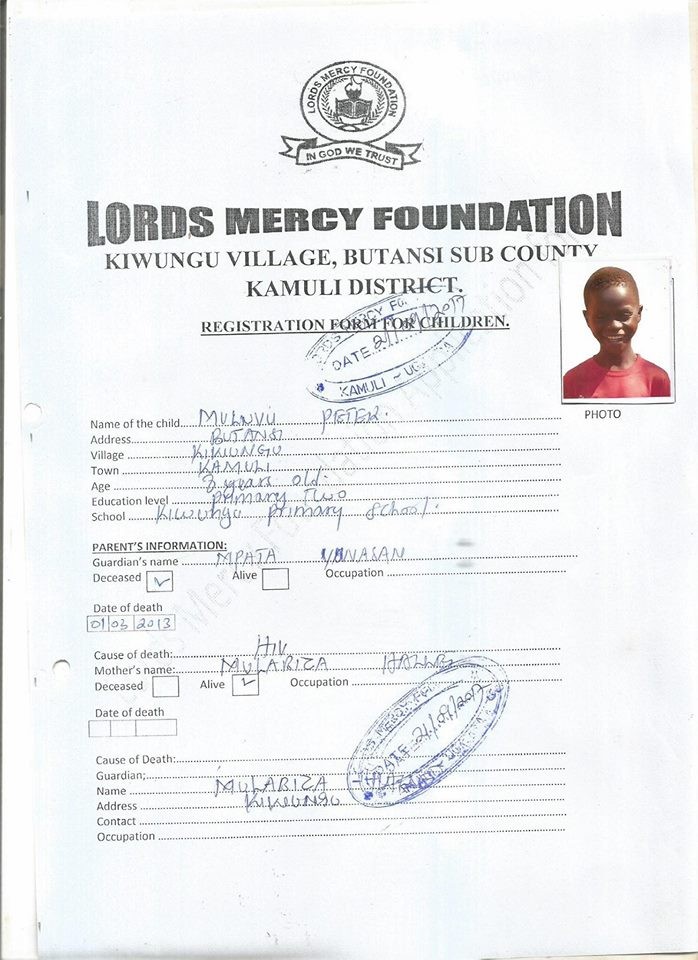 LORDS MERCY FOUNDATION
IN GOD WE TRUST
LORDS MERCY FOUNDATION
KIWUNGU VILLAGE, BUTANSI SUB COUNTY
KAMULI DISTRICT.
REGISTRATION FORM FOR CHILDREN.
LORDS MERCY
DATE 21/09/2017
KAMULI - UGANDA
PHOTO
Name of the child PETER.
Address BUTANSI
Village KIWUNGU
Town KAMULI
Age 8 years old.
Education level primary Two
School Kiwungu primary school.
PARENT'S INFORMATION:
Guardian's name MPATA YONASAN
Deceased ✓ Alive Occupation
Date of death
01 03 2013
Cause of death: HIV
Mother's name: MULARIZA
Deceased Alive ✓ Occupation
Date of death
LORDS MERCY
DATE 21/09/2017
Cause of Death:
Guardian;
Name MULARIZA
Address KIWUNGU
Contact
Occupation